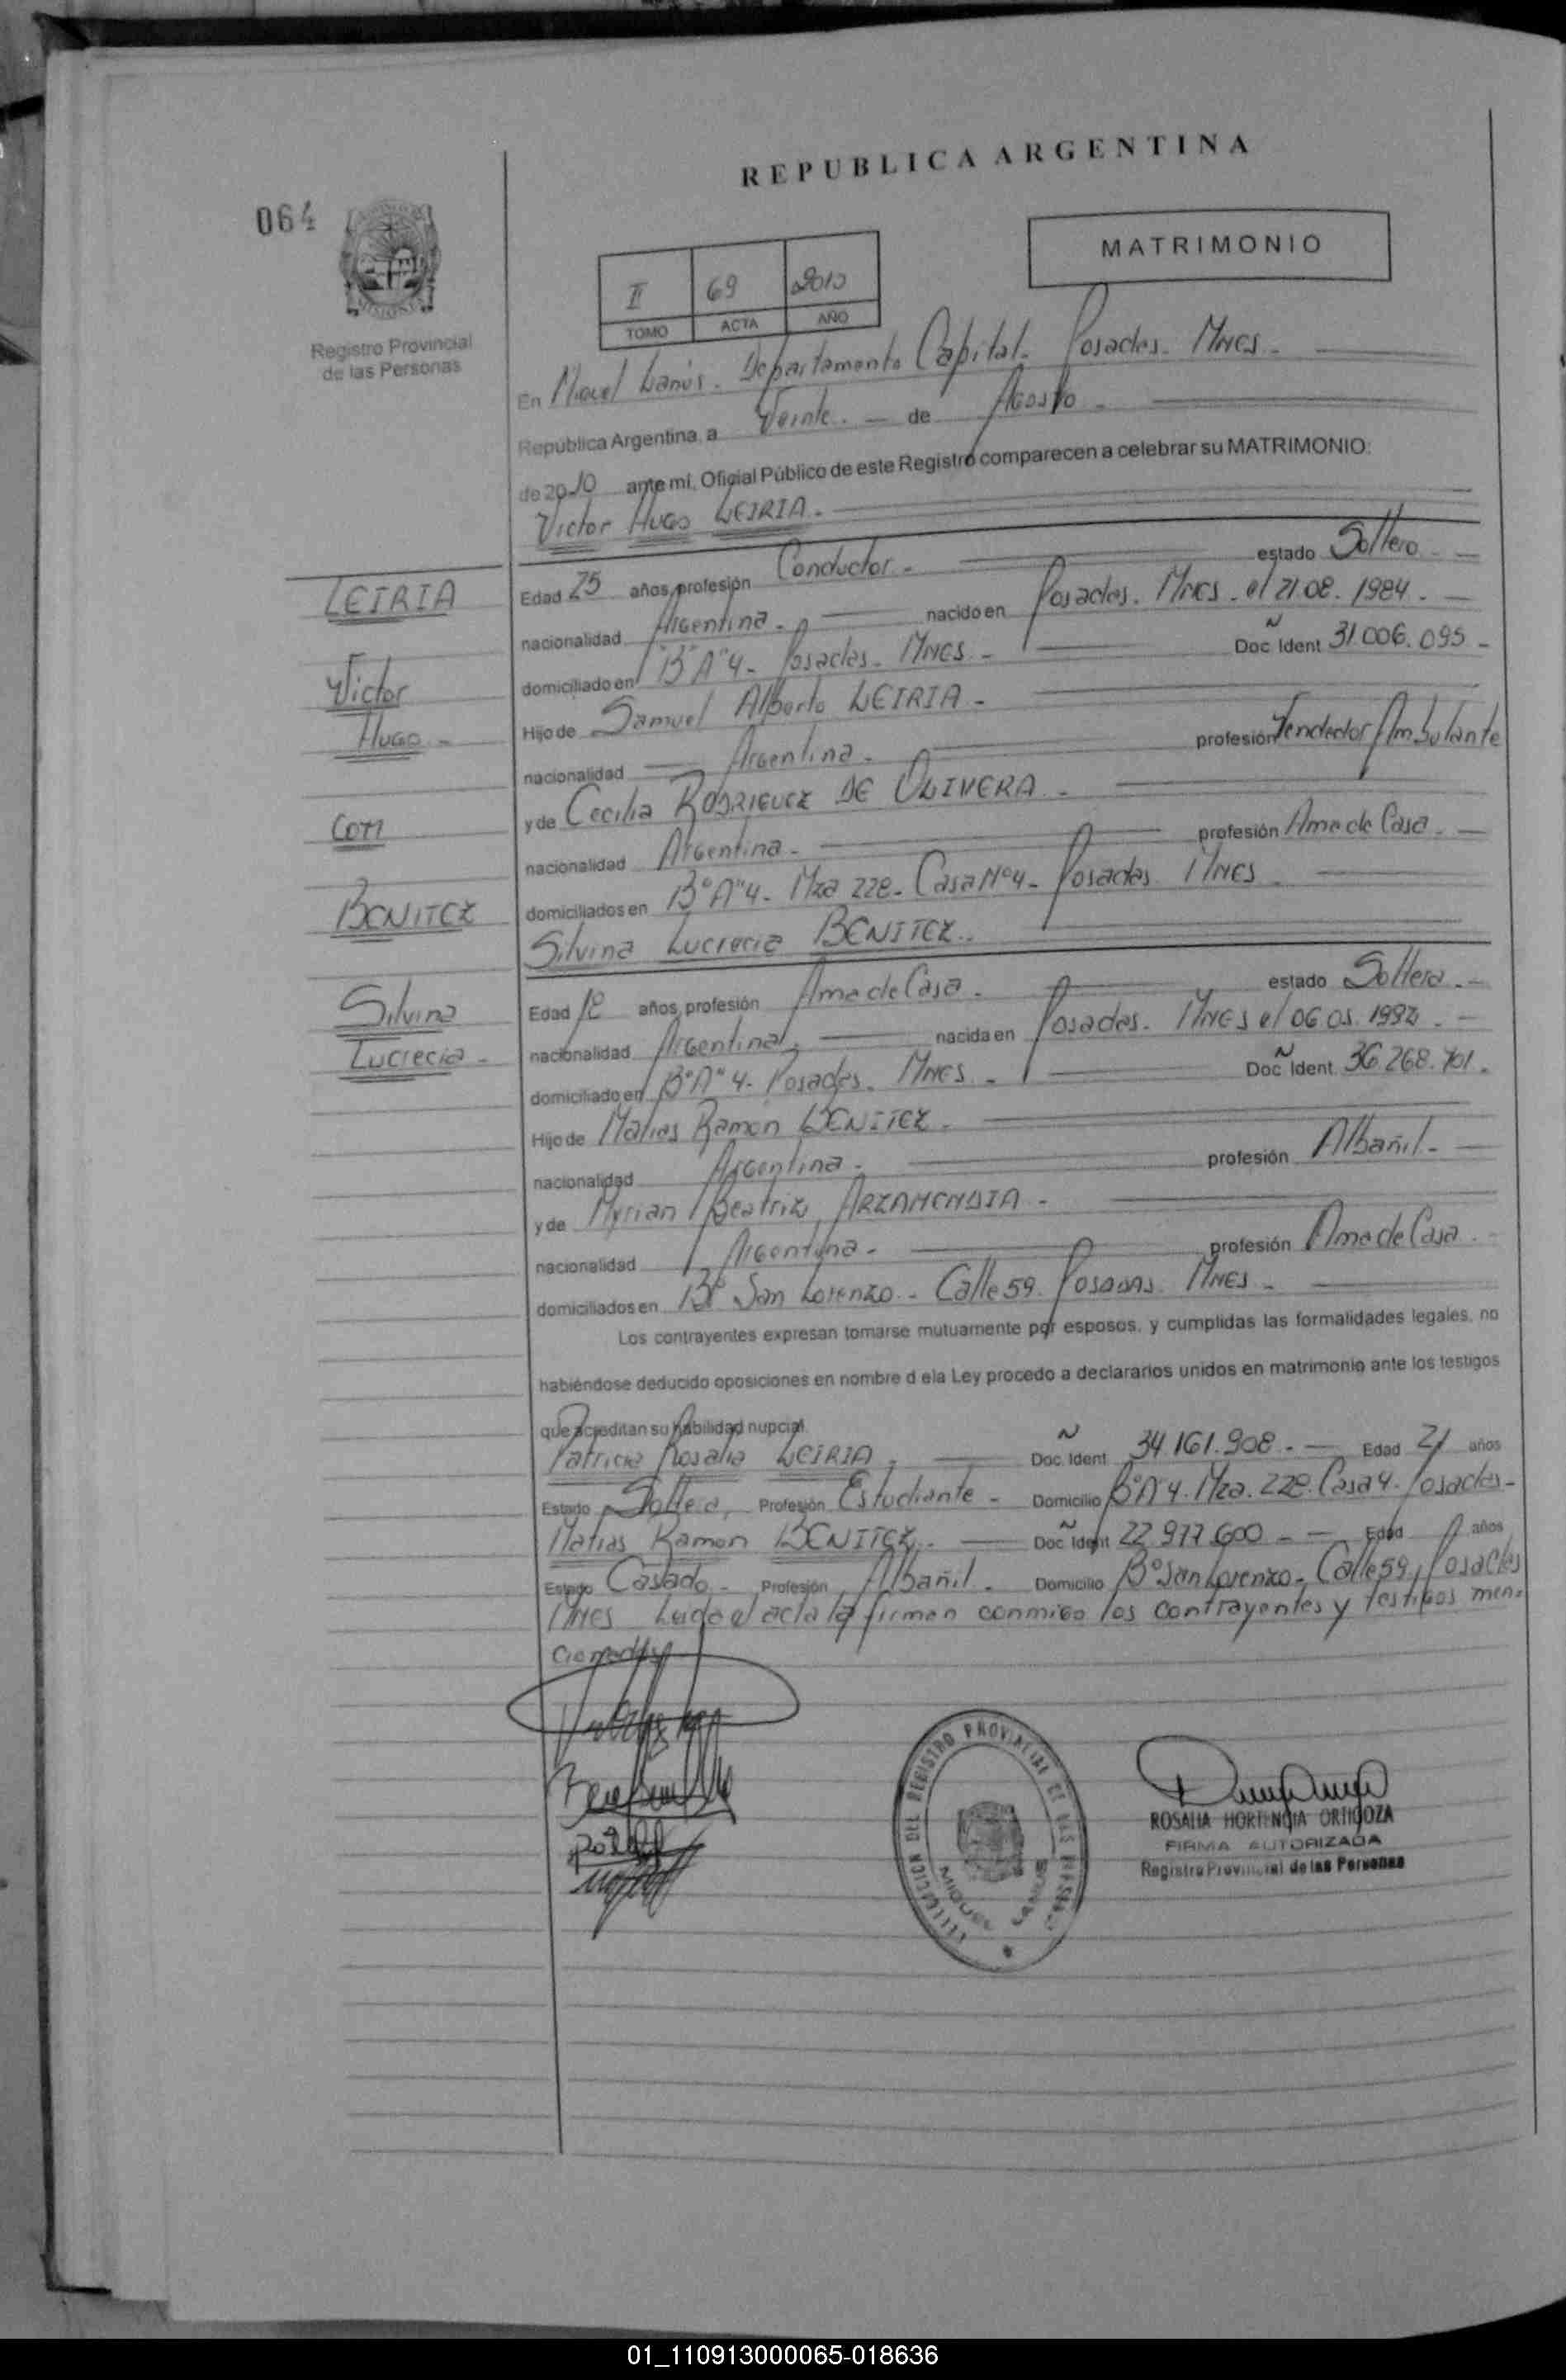 REPUBLICA ARGENTINA
064
MATRIMONIO
II 69 2010
TOMO ACTA AÑO
Registro Provincial
de las Personas
En Miguel Lanús. Departamento Capital. Posadas. Mnes.
República Argentina, a Veinte. de Agosto
de 2010 ante mi, Oficial Público de este Registro comparecen a celebrar su MATRIMONIO:
Victor Hugo LEIRIA.
LEIRIA
Edad 25 años, profesión Conductor. estado Soltero
nacionalidad Argentina. nacido en Posadas. Mnes. el 21.08.1984.
Victor
domiciliado en B° "A" 4. Posadas. Mnes. Doc Ident 31.006.095
Hugo
Hijo de Samuel Alberto LEIRIA.
nacionalidad Argentina. profesión Vendedor Ambulante
y de Cecilia RODRIGUEZ DE OLIVERA
con
nacionalidad Argentina. profesión Ama de Casa.
domiciliados en B° "A" 4. Mza 228. Casa N° 4. Posadas. Mnes
BENITEZ
Silvina Lucrecia BENITEZ.
Silvina
Edad 18 años, profesión Ama de Casa. estado Soltera.
Lucrecia
nacionalidad Argentina. nacida en Posadas. Mnes el 06.05.1992.
domiciliado en B° "A" 4. Posadas. Mnes. Doc Ident. 36.268.701.
Hijo de Matias Ramon BENITEZ.
nacionalidad Argentina. profesión Albañil.
y de Myrian Beatriz ARZAMENDIA
nacionalidad Argentina. profesión Ama de Casa.
domiciliados en B° San Lorenzo. Calle 59. Posadas. Mnes.
Los contrayentes expresan tomarse mutuamente por esposos, y cumplidas las formalidades legales, no
habiéndose deducido oposiciones en nombre d ela Ley procedo a declararlos unidos en matrimonio ante los testigos
que acreditan su habilidad nupcial.
Patricia Rosalia LEIRIA, Doc. Ident 34.161.908. Edad 21 años
Estado Soltera, Profesión Estudiante Domicilio B° "A" 4. Mza. 228. Casa 4. Posadas
Matias Ramon BENITEZ. Doc Ident 22.977.600 Edad años
Estado Casado Profesión Albañil. Domicilio B° San Lorenzo. Calle 59, Posadas
Mnes Leida el acta la firman conmigo los contrayentes y testigos men-
cionados
DELEGACION DEL REGISTRO PROVINCIAL DE LAS PERSONAS
MIGUEL LANUS
ROSALIA HORTENCIA ORTIGOZA
FIRMA AUTORIZADA
Registro Provincial de las Personas
01_110913000065-018636